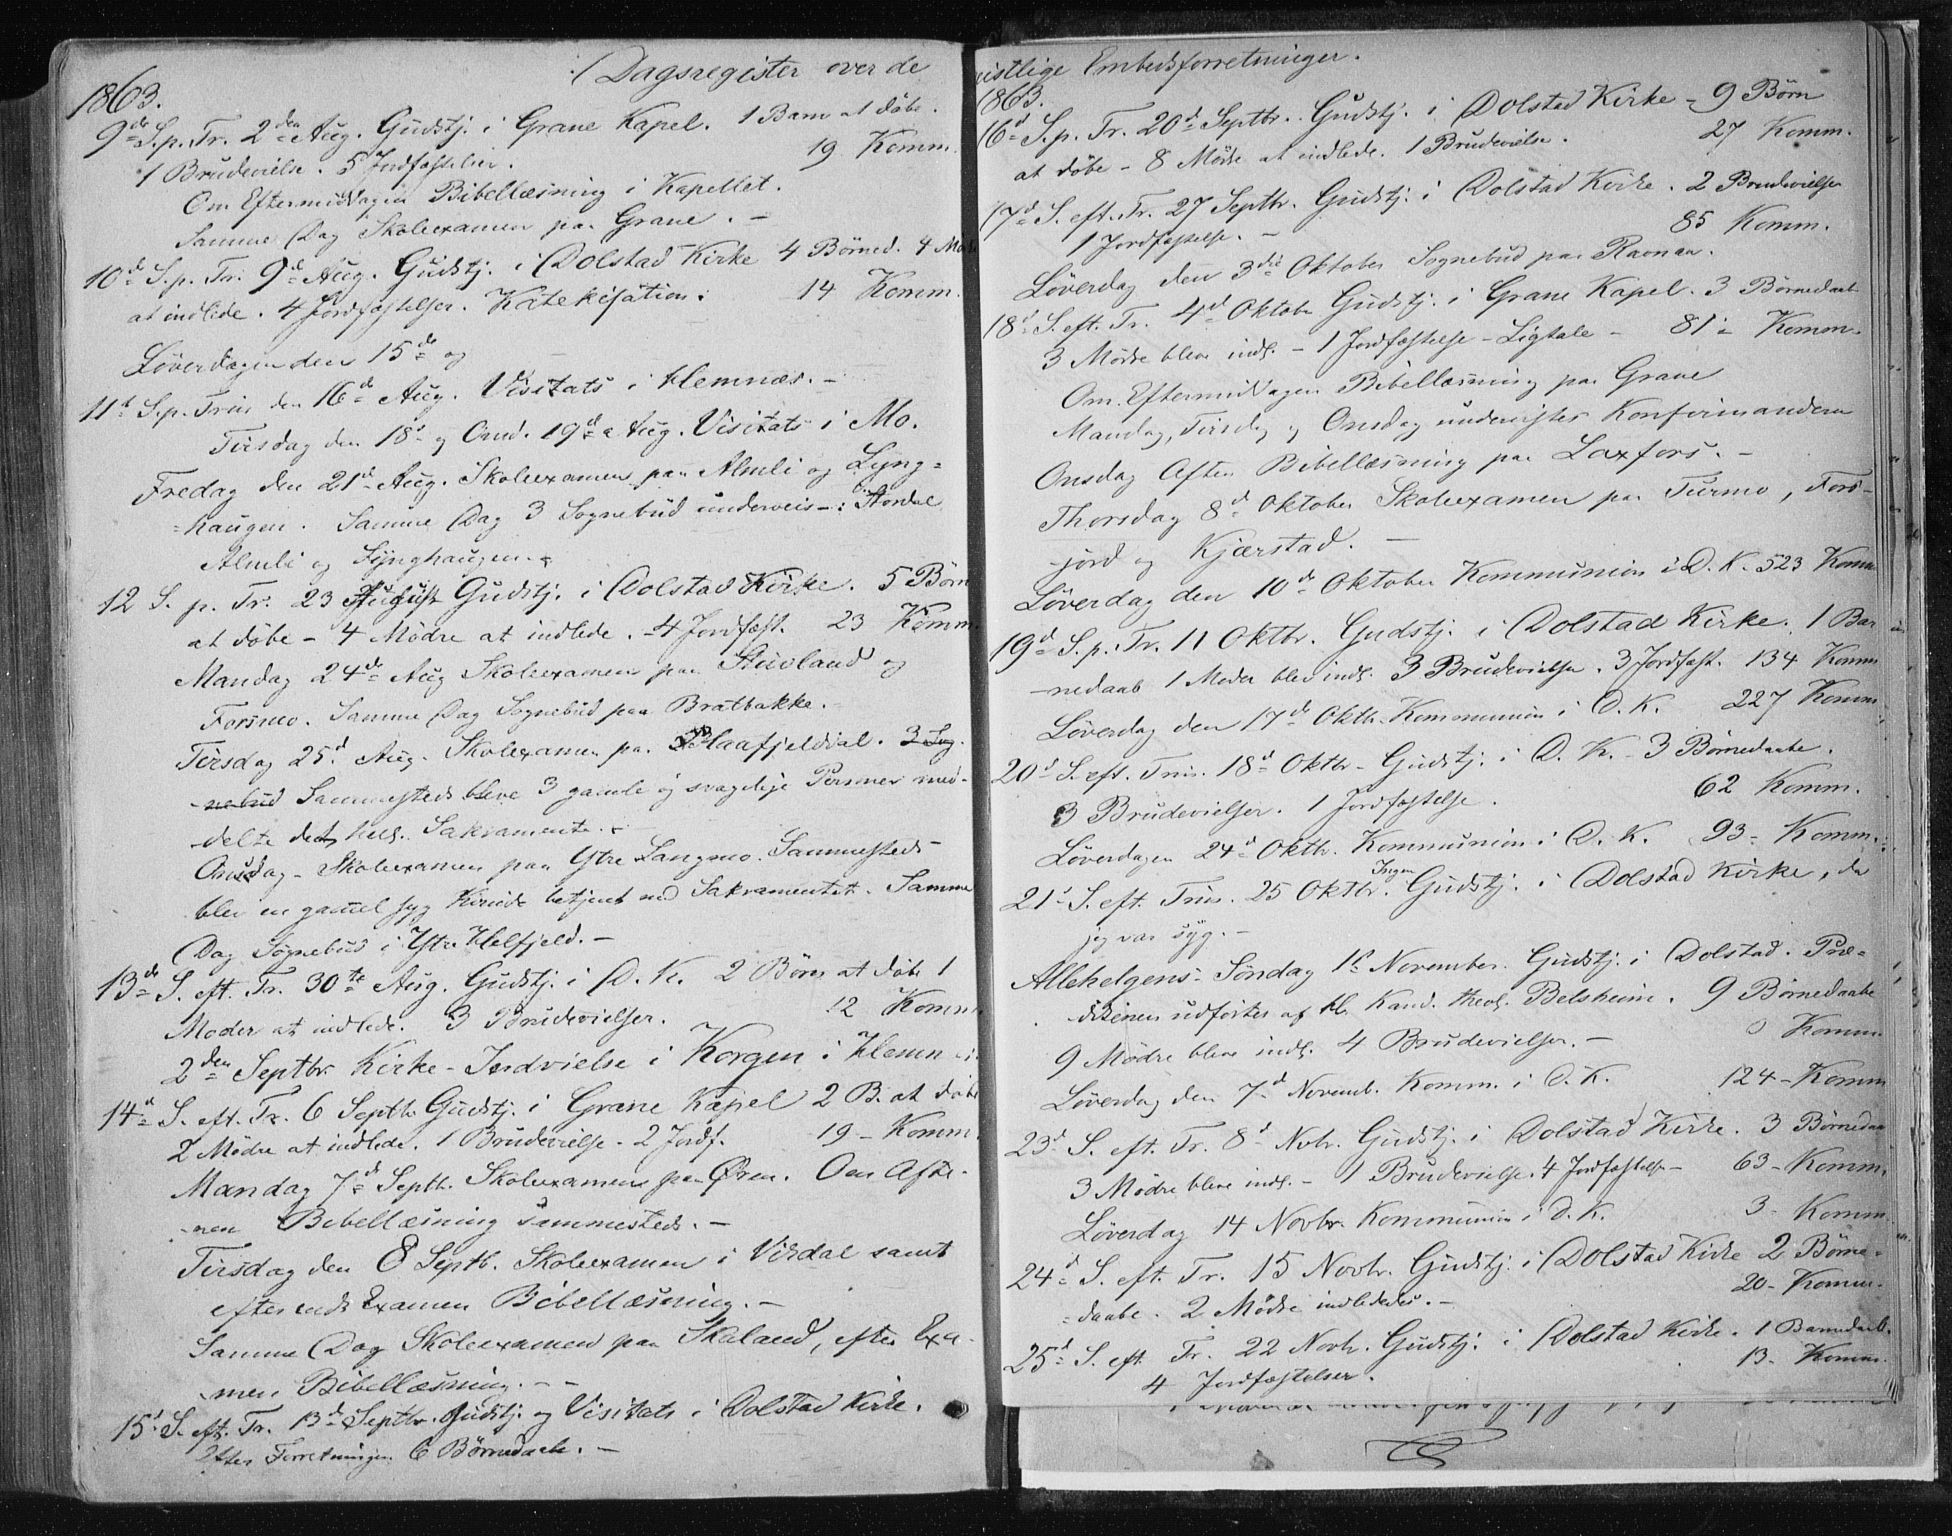 Dagsregister over de
1863.
9de S. p. Tr. 2den Aug. Gudstj. i Grane Kapel. 1 Barn at døbe.
1 Brudevielse. 5 Jordfæstelser. 19 Komm.
Om Eftermiddagen Bibellæsning i Kapellet.
Samme Dag Skoleexamen paa Grane. –
10de S. p. Tr. 9de Aug. Gudstj. i Dolstad Kirke 4 Børned. 4 Mødre
at indlede. 4 Jordfæstelser. Katekisation. 14 Komm.
Løverdagen den 15de og
11te S. p. Trin den 16de Aug. Visitats i Hemnæs. –
Tirsdag den 18de og Onsd. 19de Aug. Visitats i Mo.
Fredag den 21de Aug. Skoleexamen paa Almli og Lyng=
=haugen. Samme Dag 3 Sognebud underveis –
Almli og Lynghaugen. –
12 S. p. Tr. 23 August Gudstj. i Dolstad Kirke. 5 Børn
at døbe – 4 Mødre at indlede. – 4 Jordfæst. 23 Komm.
Mandag 24de Aug Skoleexamen paa Stuvland og
Forsmo. Samme Dag Sognebud paa Bratbakke. –
Tirsdag 25d Aug. Skoleexamen paa Haafjeldal. 3 Sog-
-nebud Sammesteds bleve 3 gamle og svagelige Personer med-
delte det hell. Sakramente. –
Onsdag – Skoleexamen paa Ytre Langmo. Sammesteds
blev en gammel syg Kvinde betjent med Sakramentet. Samme
Dag Sognebud i Ytre Helfjeld. –
13de S. eft. Tr. 30te Aug. Gudstj. i D. K. 2 Børn at døbe 1
Moder at indlede. 3 Brudevielser. 12 Komm.
2den Septbr Kirke-Indvielse i Korgen i Hemn
14d S. eft. Tr. 6 Septbr Gudstj. i Grane Kapel 2 B. at døbe
2 Mødre at indlede. 1 Brudevielse – 2 Jordf. 19 – Komm.
Mandag 7de Septb. Skoleexamen paa Øren. Om Afte-
-nen Bibellæsning sammesteds. –
Tirsdag den 8 Septb. Skoleexamen i Visdal samt
efter endt Examen Bibellæsning. –
Samme Dag Skoleexamen paa Skaland, efter Exa-
-men Bibellæsning. –
15d S. eft. Tr. 13d Septbr. Gudstj. og Visitats i Dolstad Kirke.
Efter Forretningen 6 Børnedaab. –
istlige Embedsforretninger.
1863.
16d S. p. Tr. 20d Septbr. Gudstj. i Dolstad Kirke – 9 Børn
at døbe – 8 Mødre at indlede. 1 Brudevielse. 27 Komm.
17d S. eft. Tr. 27 Septbr. Gudstj. i Dolstad Kirke. 2 Brudevielser
1 Jordfæstelse. – 85 Komm.
Løverdag den 3die Oktober Sognebud paa Ravnaa.
18d S. eft. Tr. 4d Oktobr Gudstj. i Grane Kapel. 3 Børnedaab
3 Mødre bleve indl. – 1 Jordfæstelse – Ligtale – 81 Komm.
Om Eftermiddagen Bibellæsning paa Grane
Mandag, Tirsdag og Onsdag undervistes Konfirmanderne
Onsdag Aften Bibellæsning paa Laxfors. –
Thorsdag 8d Oktober Skoleexamen paa Turmo, Ford-
jord og Kjærstad. –
Løverdag den 10de Oktober Kommunion i D. K. 523 Komm
19d S. p. Tr. 11 Oktbr. Gudstj. i Dolstad Kirke. 1 Bar
-nedaab 1 Moder blev indl. 3 Brudevielser. 3 Jordfæst. 134 Komm
Løverdag den 17de Oktb. Kommunion i D. K. 227 Komm.
20d S. eft. Trin. 18d Oktbr – Gudstj. i D. K. – 3 Børnedaabe.
3 Brudevielser. 1 Jordfæstelse. 62 Komm.
Løverdagen 24d Oktbr. Kommunion i D. K. 93 – Komm.
21d S. eft. Trin. 25 Oktbr. Ingen Gudstj. i Dolstad Kirke, da
jeg var syg. –
Allehelgens-Søndag 1d November. Gudstj. i Dolstad. Præ-
dikenen udførtes af Hr. Kand. theol. Belsheim. 9 Børnedaabe
9 Mødre bleve indl. 4 Brudevielser. – 0 Komm.
Løverdag den 7d Novemb. Komm. i D. K. 124 – Komm
23d S. eft. Tr. 8d Novbr. Gudstj. i Dolstad Kirke. 3 Børnedaa
3 Mødre bleve indl. – 1 Brudevielse. 4 Jordfæstelse – 63 – Komm.
Løverdag 14 Novbr. Kommunion i D. K. 3 – Komm.
24d S. eft. Tr. 15 Novbr. Gudstj. i Dolstad Kirke 2 Børne-
=daabe. 2 Mødre indlededes. – 20 – Komm.
25d S. eft. Tr. 22 Novbr. Gudstj. i Dolstad Kirke. 1 Barnedaab.
4 Jordfæstelser. 13 – Komm.